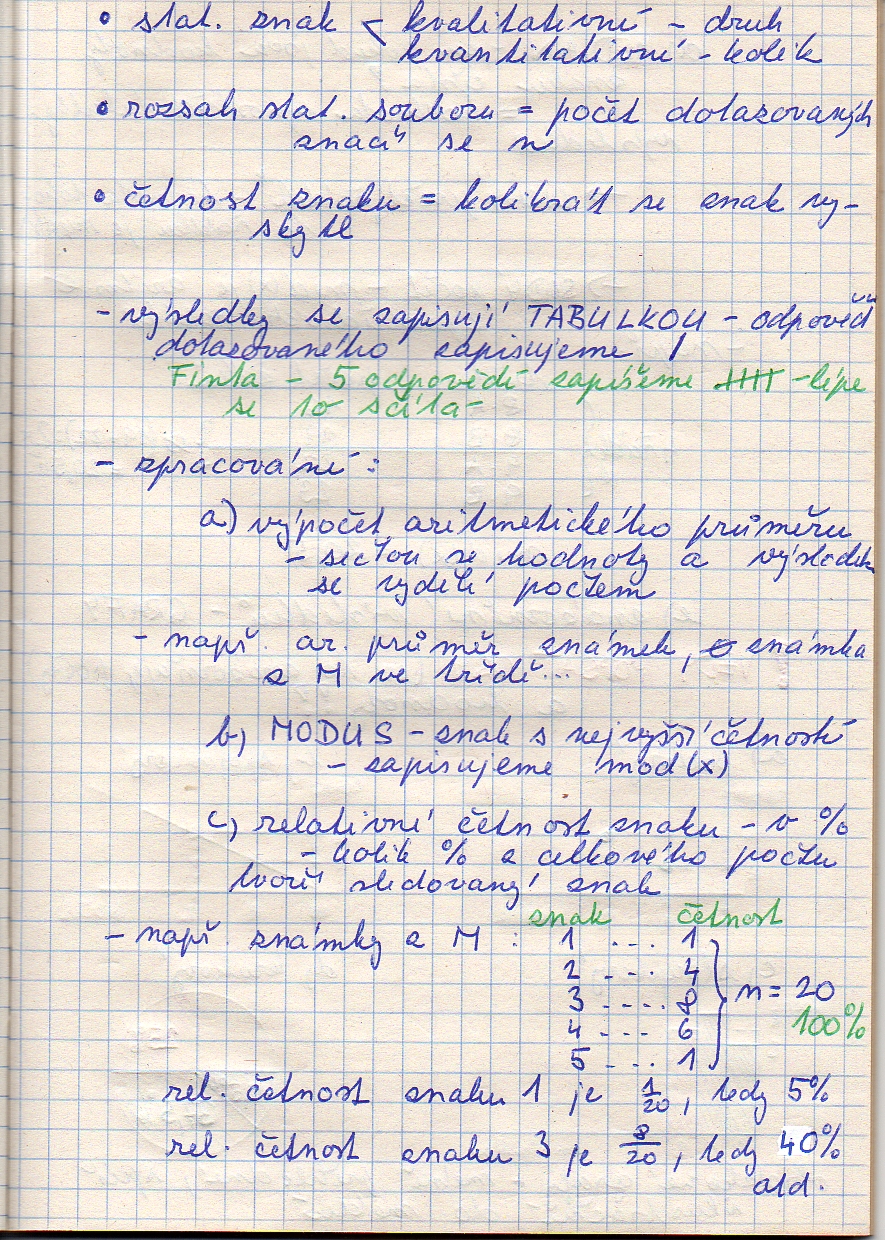 • stat. znak < kvalitativní - druh
kvantitativní - kolik
• rozsah stat. souboru = počet dotazovaných
značí se n
• četnost znaku = kolikrát se znak vy-
skytl
- výsledky se zapisují TABULKOU - odpověď
dotazovaného zapisujeme /
Finta - 5 odpovědí zapíšeme -lépe
se to sčítá
- zpracování:
a) výpočet aritmetického průměru
- sečtou se hodnoty a výsledek
se vydělí počtem
- např. ar. průměr známek, ⌀ známka
z M ve třídě...
b) MODUS - znak s nejvyšší četností
- zapisujeme mod(x)
c) relativní četnost znaku - v %
- kolik % z celkového počtu
tvoří sledovaný znak
znak četnost
- např. známky z M : 1 ... 1
2 ... 4
3 .... 8 n = 20
4 ... 6 100%
5 ... 1
rel. četnost znaku 1 je 1/20, tedy 5%
rel. četnost znaku 3 je 8/20, tedy 40%
atd.